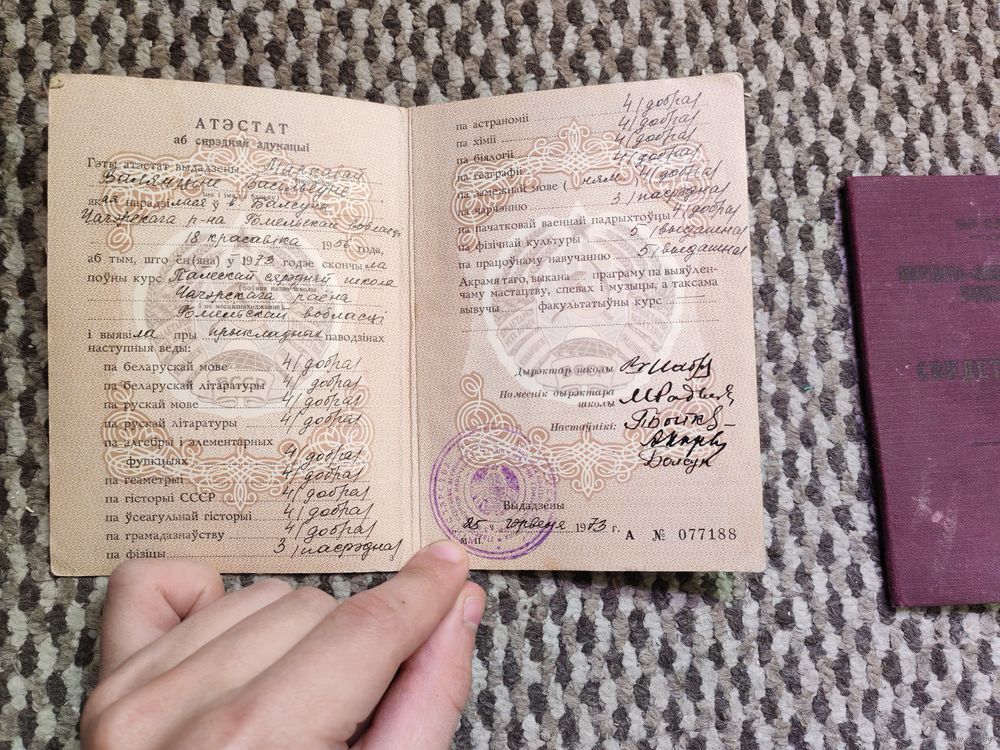 АТЭСТАТ
аб сярэдняй адукацыі
Гэты атэстат выдадзены
Валянціне Васільеўне
якая нарадзілася ў в.
Чачэрскага р-на Гомельскай вобласці
18 красавіка 1956 года,
аб тым, што ён(яна) у 1973 годзе скончыла
поўны курс сярэдняй школа
(поўная назва школы
Чачэрскага раёна
і яе месцазнаходжанне)
Гомельскай вобласці
і выявіла пры прыкладных паводзінах
наступныя веды:
па беларускай мове 4/добра/
па беларускай літаратуры 4/добра/
па рускай мове 4/добра/
па рускай літаратуры 4/добра/
па алгебры і элементарных
функцыях 4/добра/
па геаметрыі 4/добра/
па гісторыі СССР 4/добра/
па ўсеагульнай гісторыі 4/добра/
па грамадазнаўству 4/добра/
па фізіцы 3/пасрэдна/
па астраноміі 4/добра/
па хіміі 4/добра/
па біялогіі 4/добра/
па геаграфіі 4/добра/
па замежнай мове (ням.) 4/добра/
па чарчэнню 3/пасрэдна/
па пачатковай ваеннай падрыхтоўцы 4/добра/
па фізічнай культуры 5/выдатна/
па працоўнаму навучанню 5/выдатна/
Акрамя таго, выкана праграму па выяўлен-
чаму мастацтву, спевах і музыцы, а таксама
вывучы факультатыўны курс
Дырэктар школы
Намеснік дырэктара
школы
Настаўнікі:
Выдадзены
25 чэрвеня 1973 г.
М.П.
А № 077188